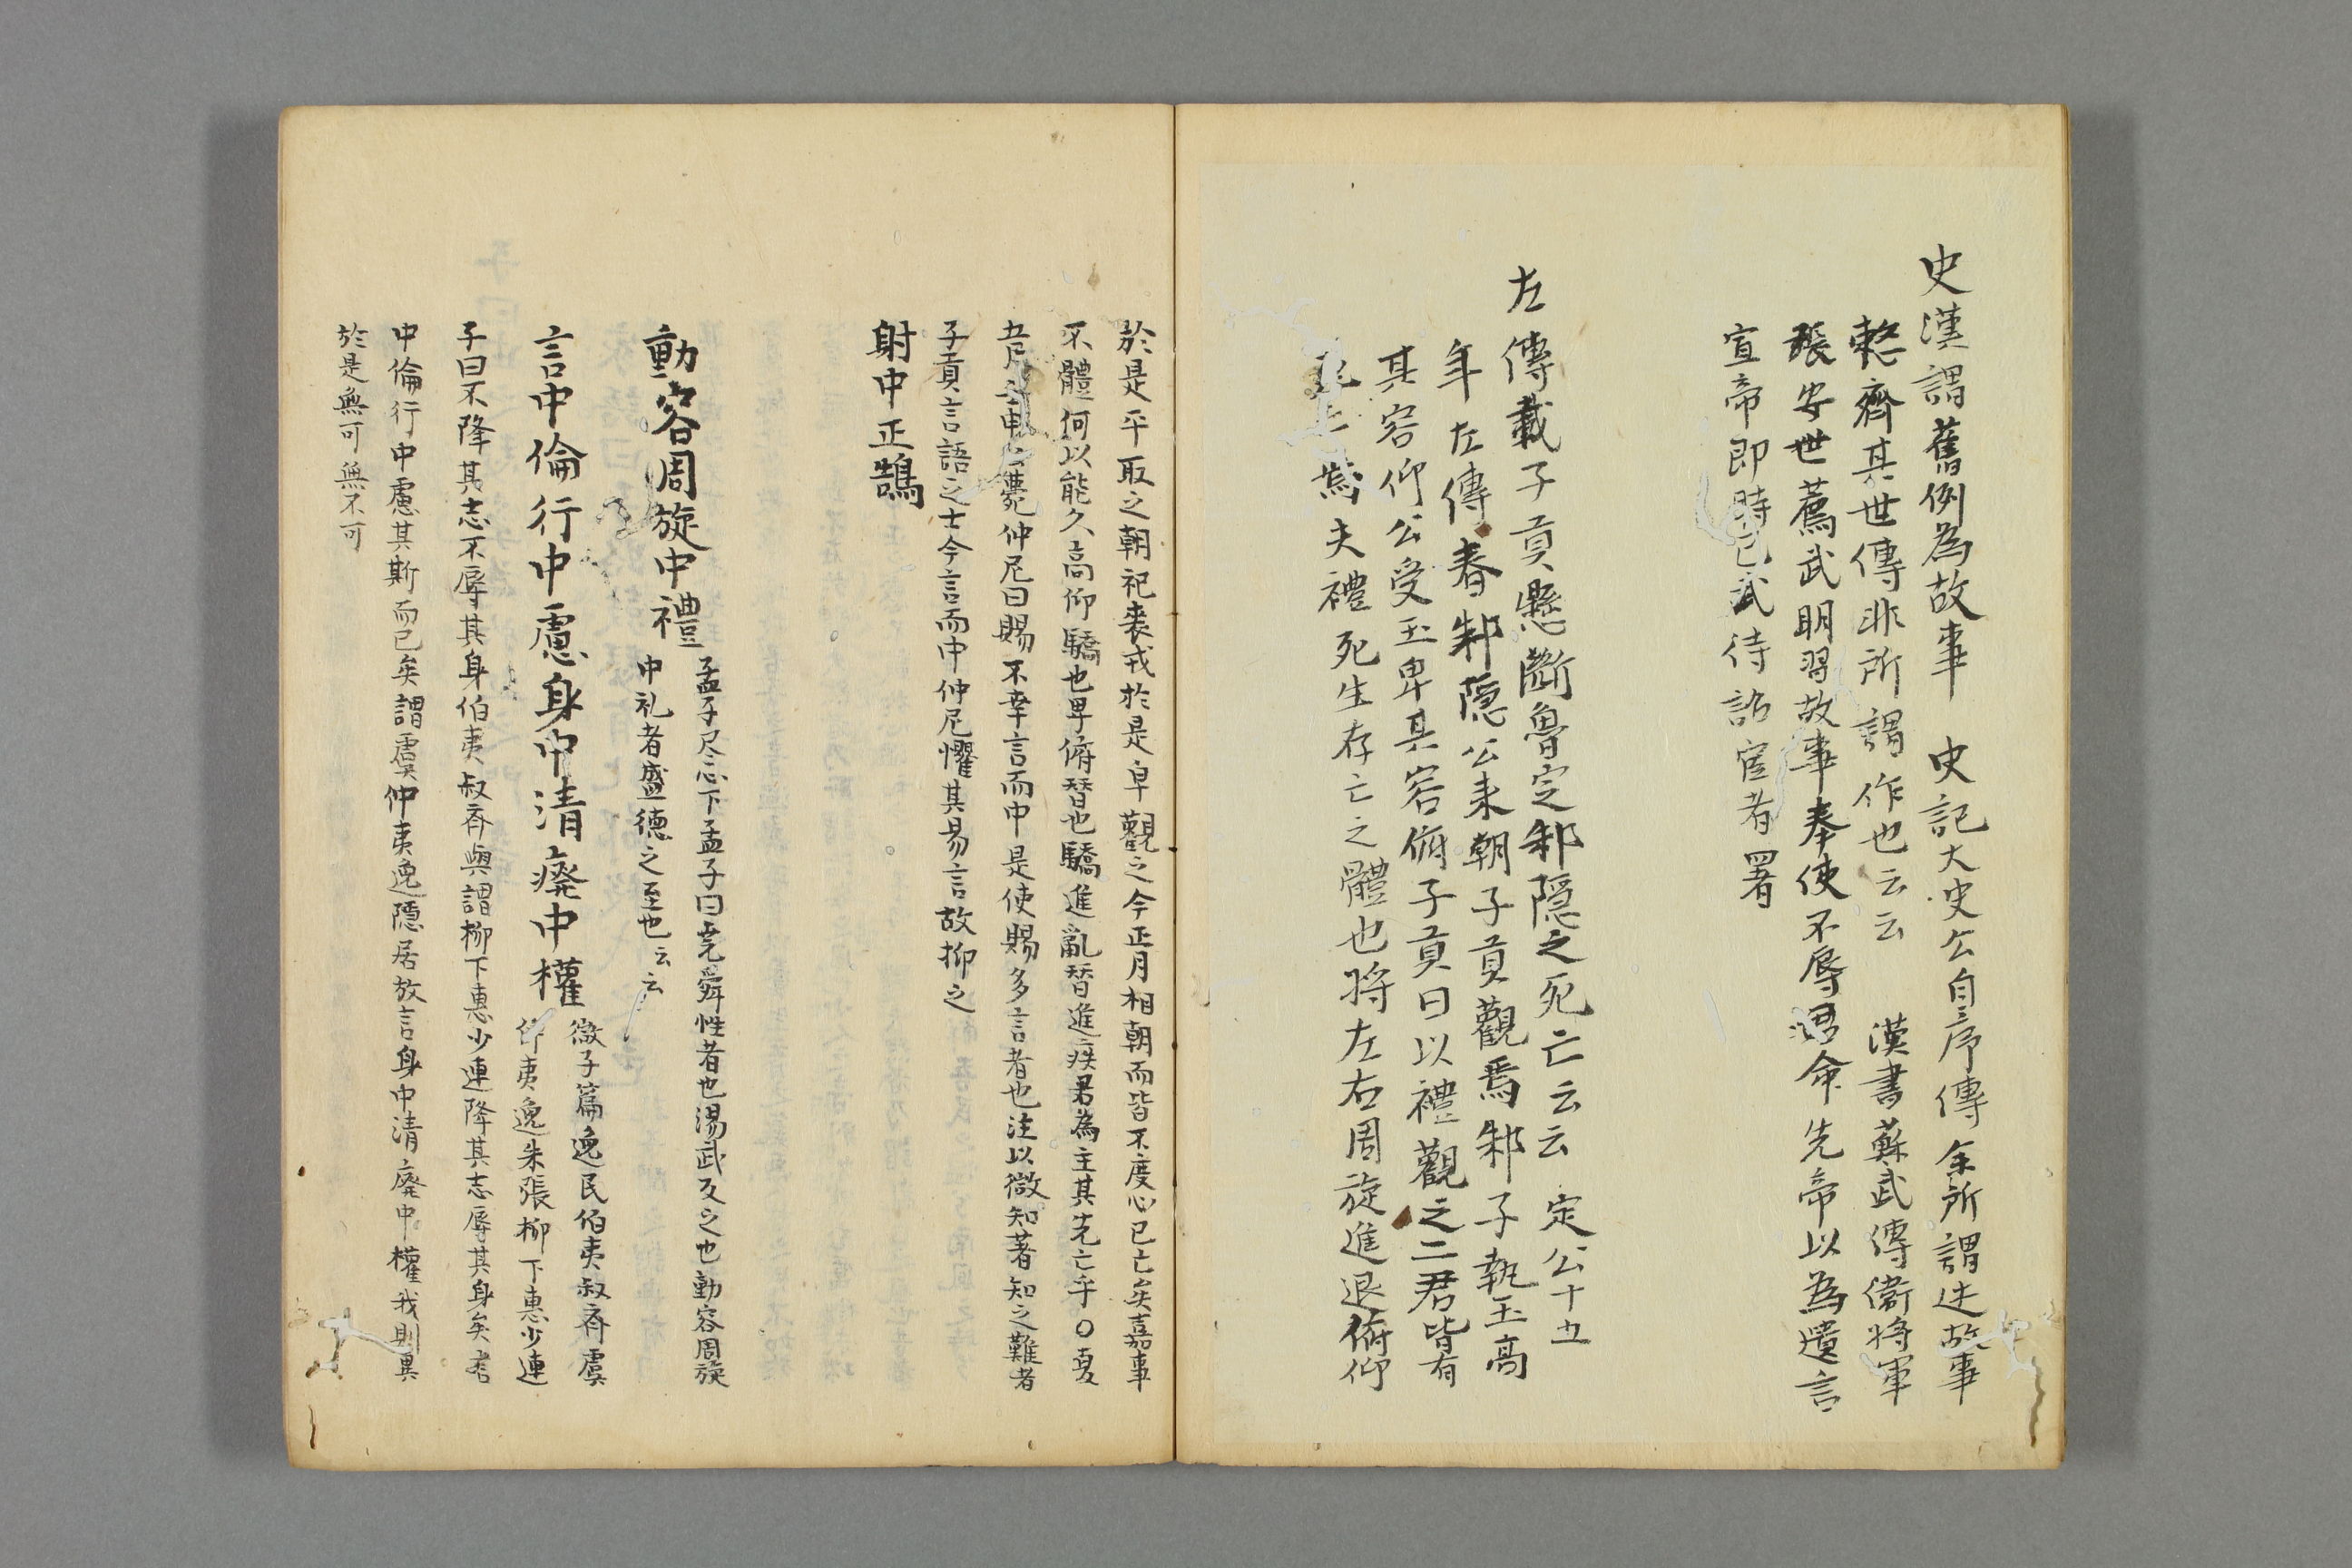 史漢謂舊例為故事 史記大史公自序傳 余所謂述故事
整齊其世傳非所謂作也云云 漢書蘇武傳衛將軍
張安世薦武明習故事奉使不辱君命先帝以為遺言
宣帝即時召武待詔宦者署
左傳載子貢懸斷魯定邾隠之死亡云云 定公十五
年左傳春邾隠公来朝子貢觀焉邾子執玉高
其容仰公受玉卑其容俯子貢曰以禮觀之二君皆有
死亡焉夫禮死生存亡之體也将左右周旋進退俯仰
於是乎取之朝祀喪戎於是乎觀之今正月相朝而皆不度心已亡矣嘉事
不體何以能久高仰驕也卑俯替也驕進亂替進疾君為主其先亡乎○夏
五月壬申公薨仲尼曰賜不幸言而中是使賜多言者也注以微知著知之難者
子貢言語之士今言而中仲尼懼其易言故抑之
射中正鵠
動容周旋中禮 孟子尽心下孟子曰尭舜性者也湯武反之也動容周旋
中礼者盛德之至也云云
言中倫行中慮身中清廢中權 微子篇逸民伯夷叔斉虞
仲夷逸朱張柳下惠少連
子曰不降其志不辱其身伯夷叔斉與謂柳下惠少連降其志辱其身矣言
中倫行中慮其斯而已矣謂虞仲夷逸隠居放言身中清廢中權我則異
於是無可無不可